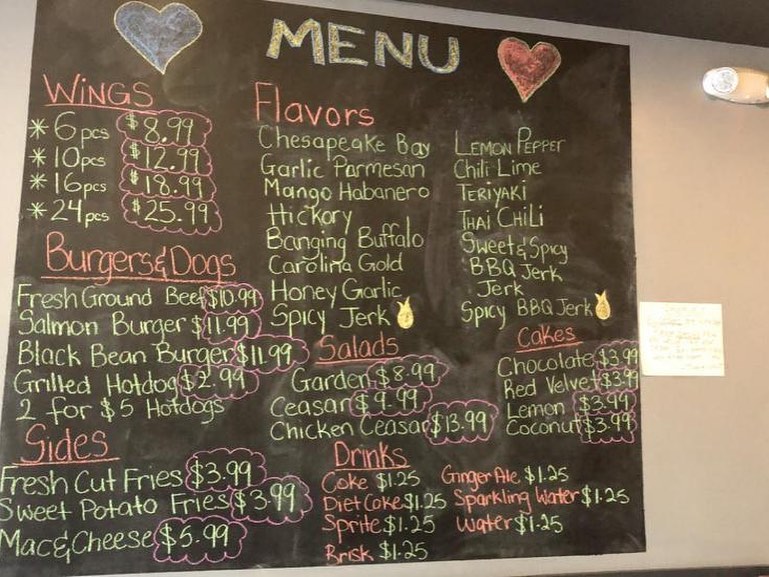 MENU
WINGS
* 6 pcs $8.99
* 10pcs $12.99
* 16pcs $18.99
* 24pcs $25.99
Flavors
Chesapeake Bay
Garlic Parmesan
Mango Habanero
Hickory
Banging Buffalo
Carolina Gold
Honey Garlic
Spicy Jerk
LEMON PEPPER
Chili Lime
TERIYAKI
THAI CHILI
Sweet&Spicy
BBQ Jerk
Jerk
Spicy BBQ Jerk
Burgers&Dogs
Fresh Ground Beef $10.99
Salmon Burger $11.99
Black Bean Burger $11.99
Grilled Hotdog $2.99
2 for $5 Hotdogs
Salads
Garden $8.99
Ceasar $9.99
Chicken Ceasar $13.99
Cakes
Chocolate $3.99
Red Velvet $3.99
Lemon $3.99
Coconut $3.99
Sides
Fresh Cut Fries $3.99
Sweet Potato Fries $3.99
Mac&Cheese $5.99
Drinks
Coke $1.25
Diet Coke $1.25
Sprite $1.25
Brisk $1.25
Ginger Ale $1.25
Sparkling Water $1.25
Water $1.25